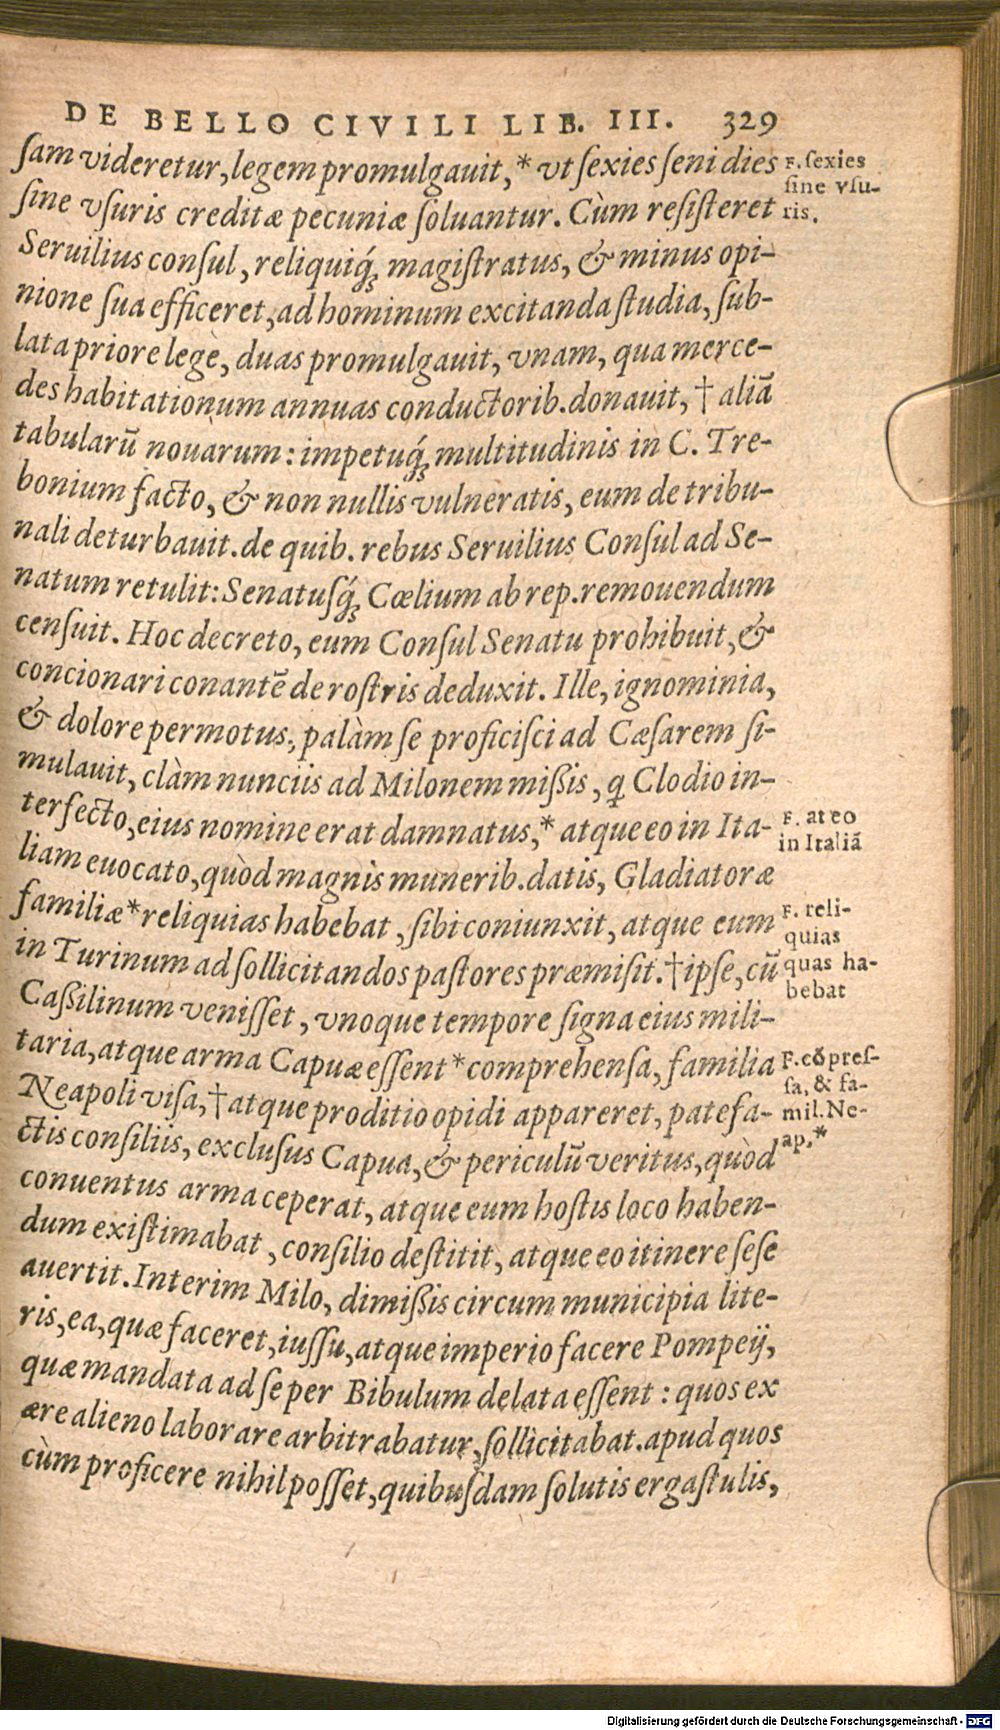 DE BELLO CIVILI LIB. III. 329
ſam videretur, legem promulgauit, * vt ſexies ſeni dies
ſine vſuris creditæ pecuniæ ſoluantur. Cùm reſiſteret
Seruilius conſul, reliquiq́ꝫ magiſtratus, & minus opi-
nione ſua efficeret, ad hominum excitanda ſtudia, ſub-
lata priore lege, duas promulgauit, vnam, qua merce-
des habitationum annuas conductorib. donauit, † aliā
tabularū nouarum: impetuq́ꝫ multitudinis in C. Tre-
bonium facto, & non nullis vulneratis, eum de tribu-
nali deturbauit. de quib. rebus Seruilius Conſul ad Se-
natum retulit: Senatuſq́ꝫ Cœlium ab rep. remouendum
cenſuit. Hoc decreto, eum Conſul Senatu prohibuit, &
concionari conantē de roſtris deduxit. Ille, ignominia,
& dolore permotus, palàm ſe proficiſci ad Cæſarem ſi-
mulauit, clàm nunciis ad Milonem mißis, ꝗ Clodio in-
terfecto, eius nomine erat damnatus, * atque eo in Ita-
liam euocato, quòd magnis munerib. datis, Gladiatoræ
familiæ * reliquias habebat, ſibi coniunxit, atque eum
in Turinum ad ſollicitandos paſtores præmiſit. † ipſe, cū
Caßilinum veniſſet, vnoque tempore ſigna eius mili-
taria, atque arma Capuæ eſſent * comprehenſa, familia
Neapoli viſa, † atque proditio opidi appareret, patefa-
ctis conſiliis, excluſus Capua, & periculū veritus, quòd
conuentus arma ceperat, atque eum hoſtis loco haben-
dum exiſtimabat, conſilio deſtitit, atque eo itinere ſeſe
auertit. Interim Milo, dimißis circum municipia lite-
ris, ea, quæ faceret, iuſſu, atque imperio facere Pompeij,
quæ mandata ad ſe per Bibulum delata eſſent: quos ex
ære alieno laborare arbitrabatur, ſollicitabat. apud quos
cùm proficere nihil poſſet, quibuſdam ſolutis ergaſtulis,
F. ſexies
ſine vſu-
ris.
F. at eo
in Italiā
F. reli-
quias
quas ha-
bebat
F. cōpreſ-
ſa, & fa-
mil. Ne-
ap. *
Digitalisierung gefördert durch die Deutsche Forschungsgemeinschaft - DFG